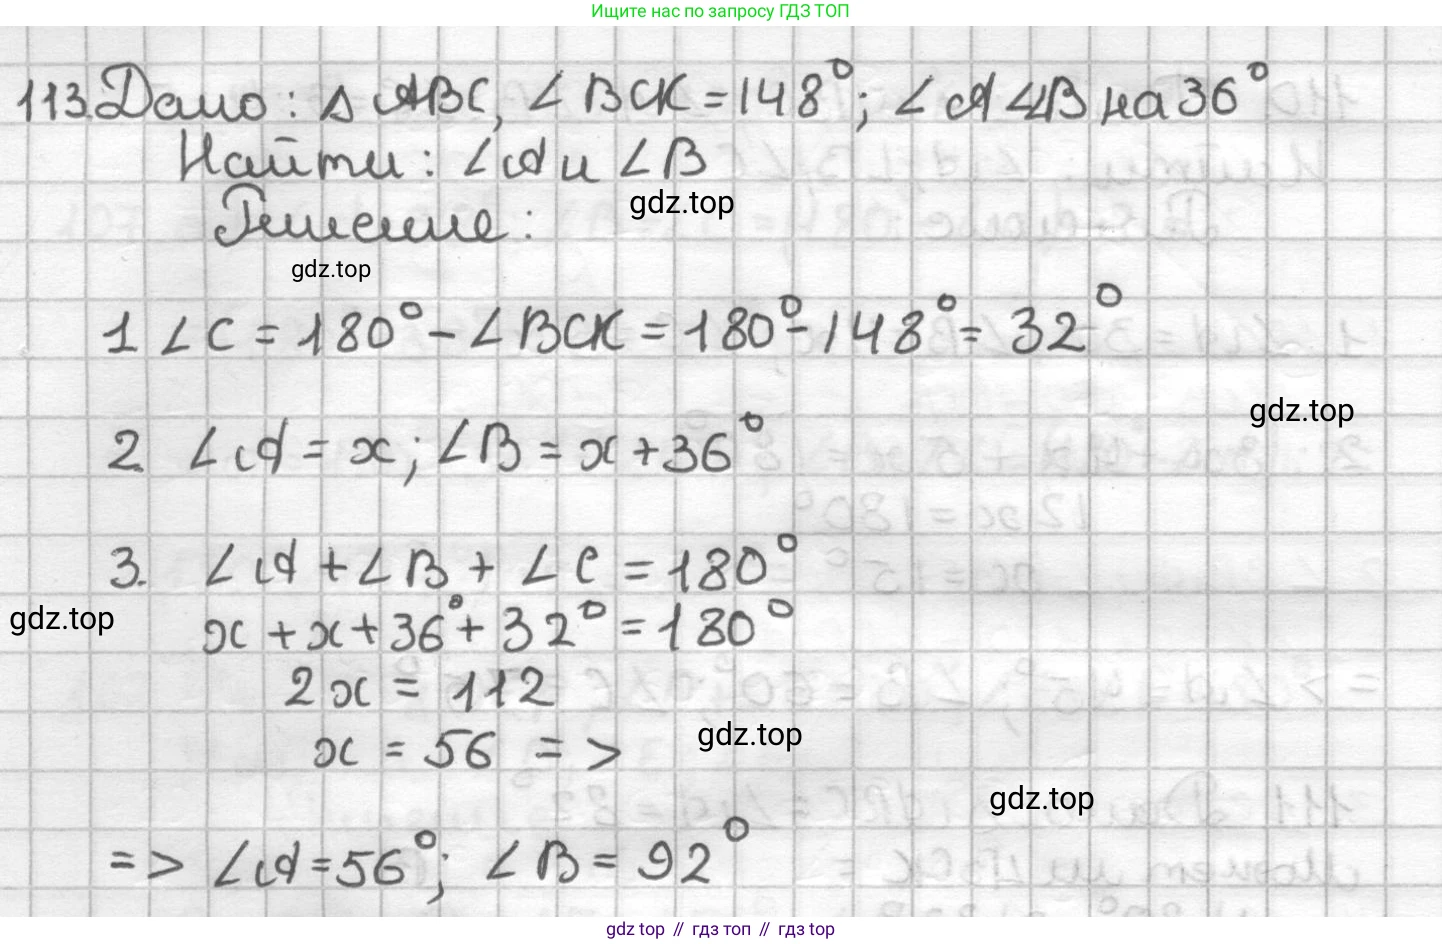 Ищите нас по запросу ГДЗ ТОП
113. Дано: Δ ABC, ∠ BCK = 148°; ∠ A < ∠B на 36°
Найти: ∠A и ∠B
gdz.top
Решение:
gdz.top
1 ∠C = 180° - ∠BCK = 180° - 148° = 32°
gdz.top
2. ∠A = x; ∠B = x + 36°
3. ∠A + ∠B + ∠C = 180°
gdz.top
x + x + 36° + 32° = 180°
2x = 112
x = 56 =>
gdz.top
gdz.top
=> ∠A = 56°; ∠B = 92°
gdz.top // гдз топ // гдз top